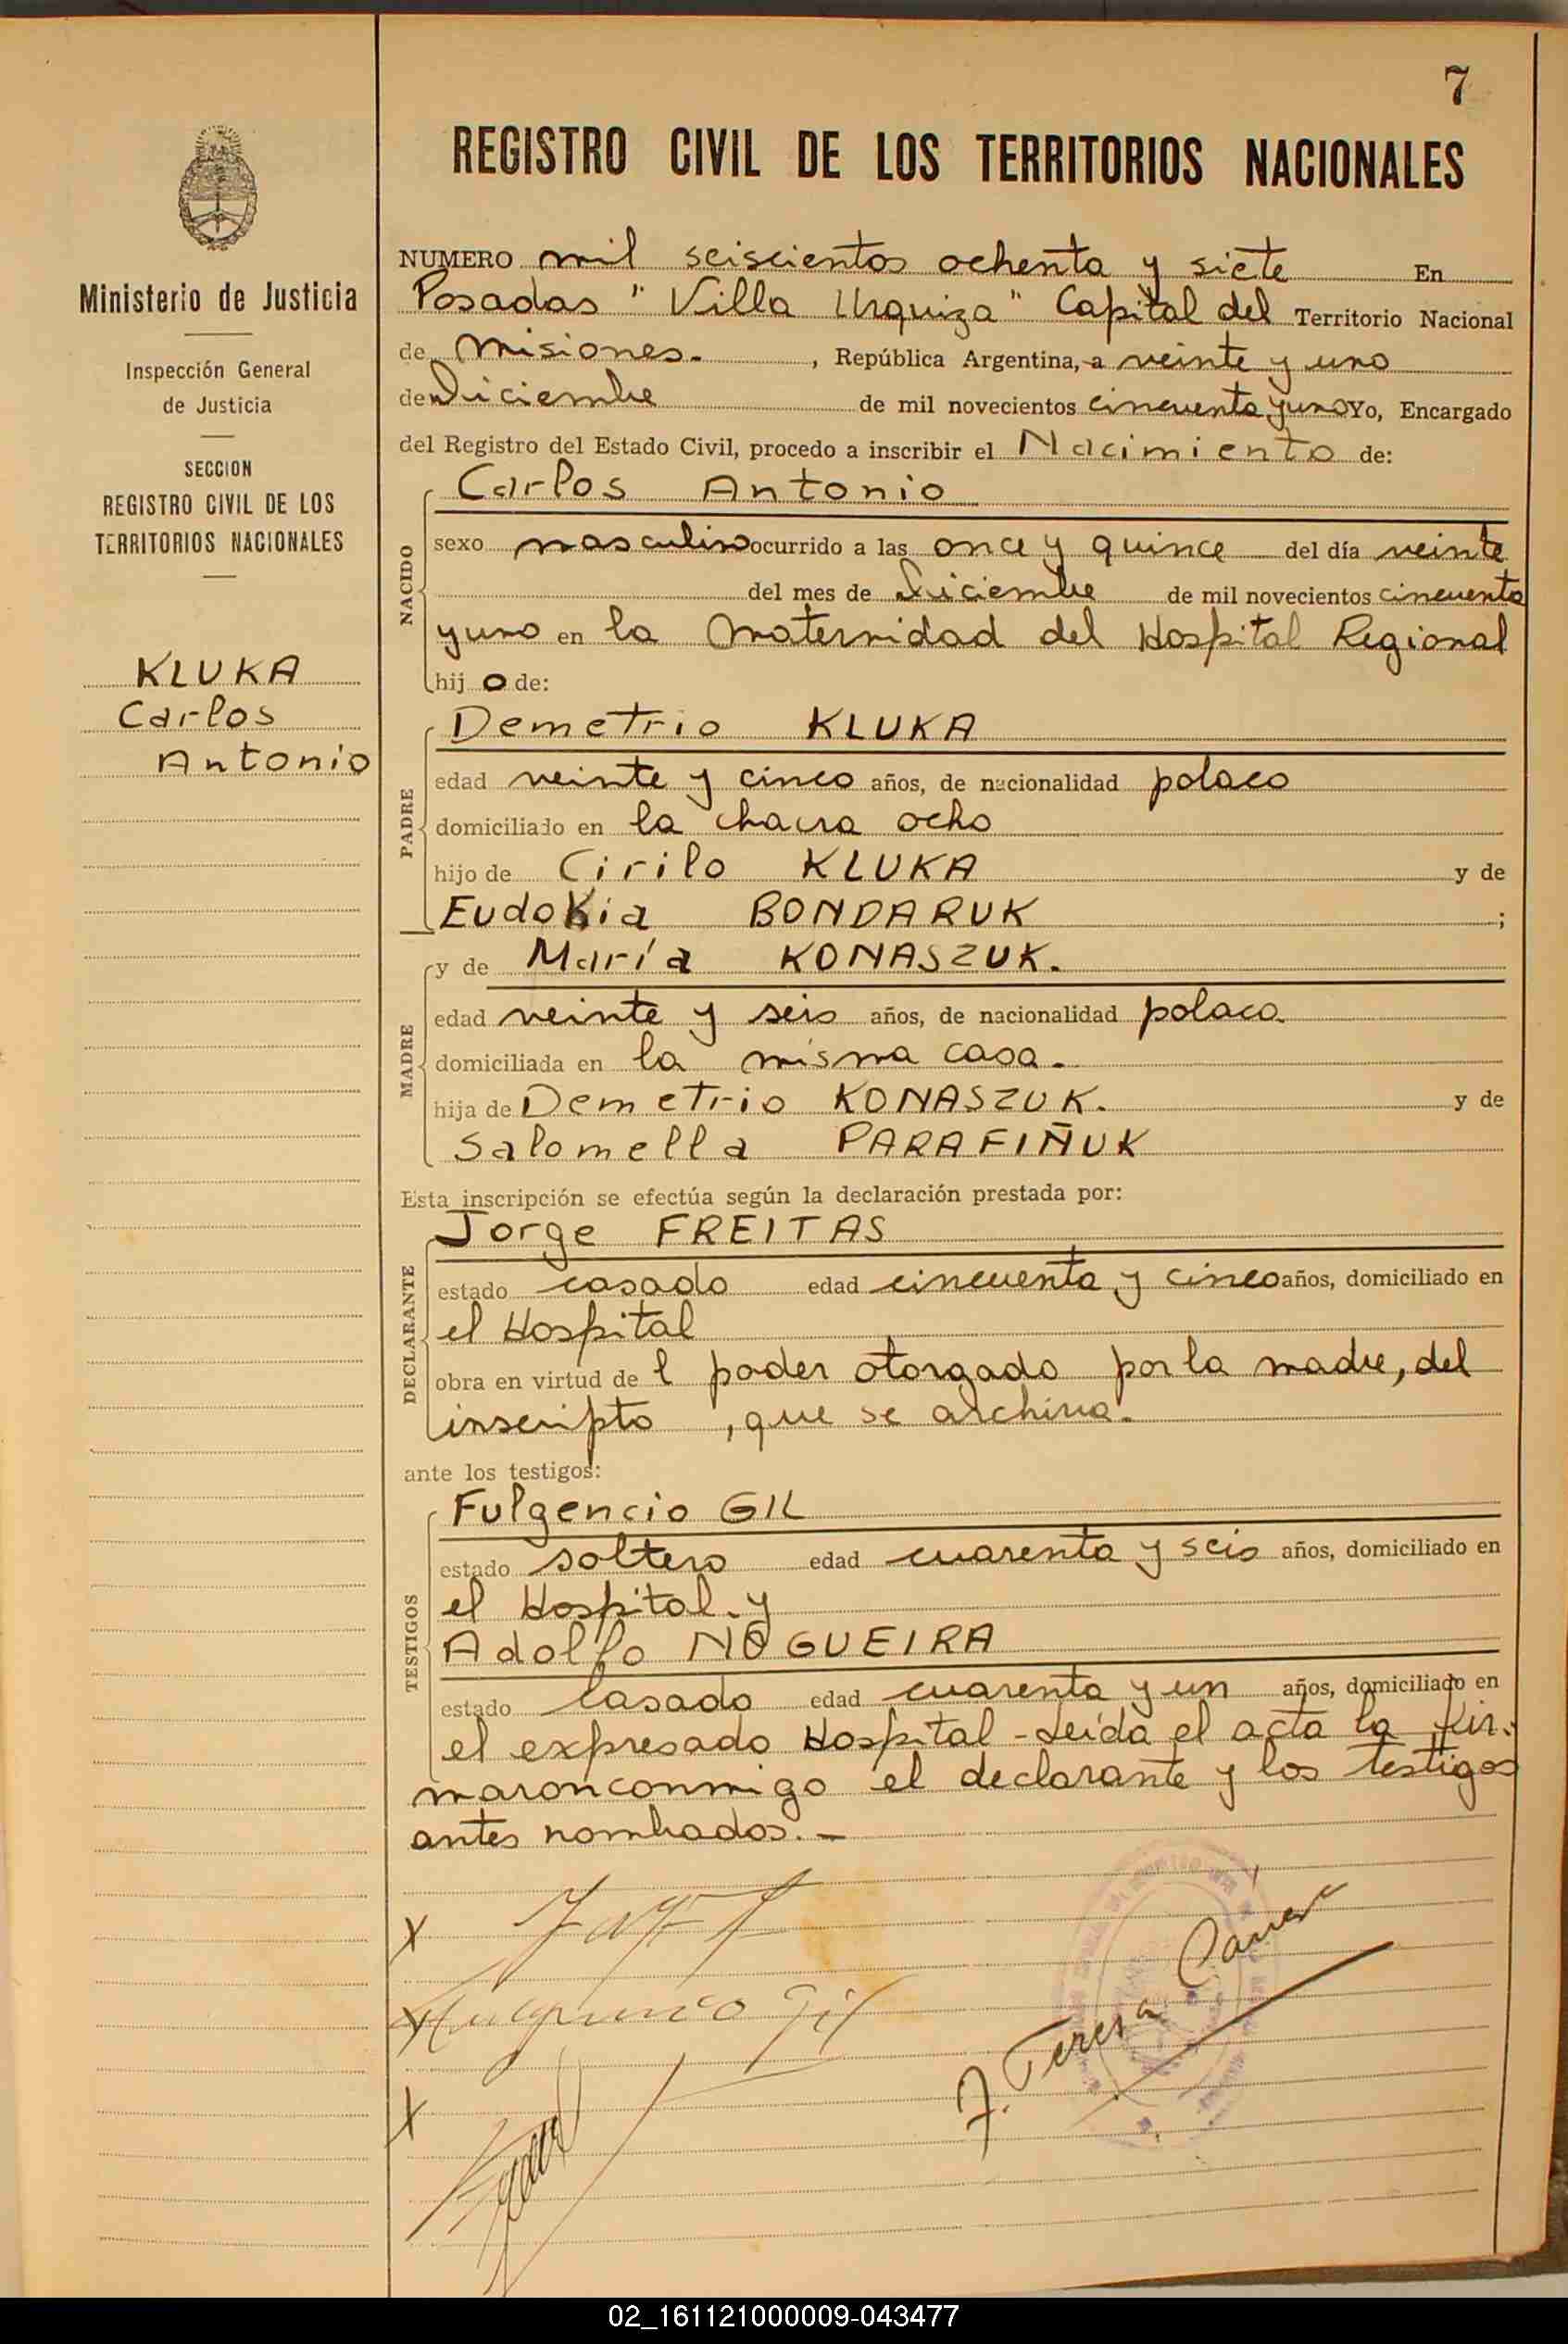 7
REGISTRO CIVIL DE LOS TERRITORIOS NACIONALES
Ministerio de Justicia
Inspección General
de Justicia
SECCION
REGISTRO CIVIL DE LOS
TERRITORIOS NACIONALES
KLUKA
Carlos
Antonio
NUMERO mil seiscientos ochenta y siete En
Posadas "Villa Urquiza" Capital del Territorio Nacional
de Misiones. , República Argentina, a veinte y uno
de Diciembre de mil novecientos cincuenta y uno Yo, Encargado
del Registro del Estado Civil, procedo a inscribir el Nacimiento de:
NACIDO
Carlos Antonio
sexo masculino ocurrido a las once y quince del día veinte
del mes de Diciembre de mil novecientos cincuenta
y uno en la Maternidad del Hospital Regional
hij o de:
PADRE
Demetrio KLUKA
edad veinte y cinco años, de nacionalidad polaco
domiciliado en la chacra ocho
hijo de Cirilo KLUKA y de
EudoKia BONDARUK ;
MADRE
y de María KONASZUK.
edad veinte y seis años, de nacionalidad polaca.
domiciliada en la misma casa.
hija de Demetrio KONASZUK. y de
Salomella PARAFIÑUK
Esta inscripción se efectúa según la declaración prestada por:
DECLARANTE
Jorge FREITAS
estado casado edad cincuenta y cinco años, domiciliado en
el Hospital
obra en virtud de l poder otorgado por la madre, del
inscripto , que se archiva.
ante los testigos:
TESTIGOS
Fulgencio GIL
estado soltero edad cuarenta y seis años, domiciliado en
el Hospital. y
Adolfo NOGUEIRA
estado Casado edad cuarenta y un años, domiciliado en
el expresado Hospital - Leída el acta la fir-
maron conmigo el declarante y los testigos
antes nombrados. -
X
X Fulgencio Gil
X
J. Teresa
02_161121000009-043477